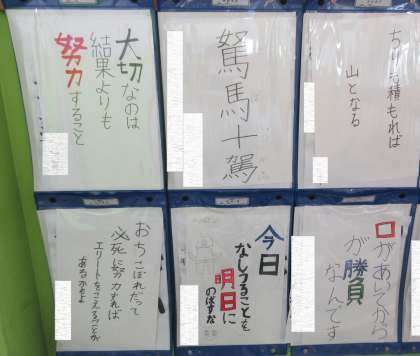 大切なのは
結果よりも
努力すること
駑馬十駕
ちりも積もれば
山となる
おちこぼれだって
必死に努力すれば
エリートをこえることが
あるかもよ
今日
なしうることを
明日に
のばすな
口があいてから
が勝負
なんです